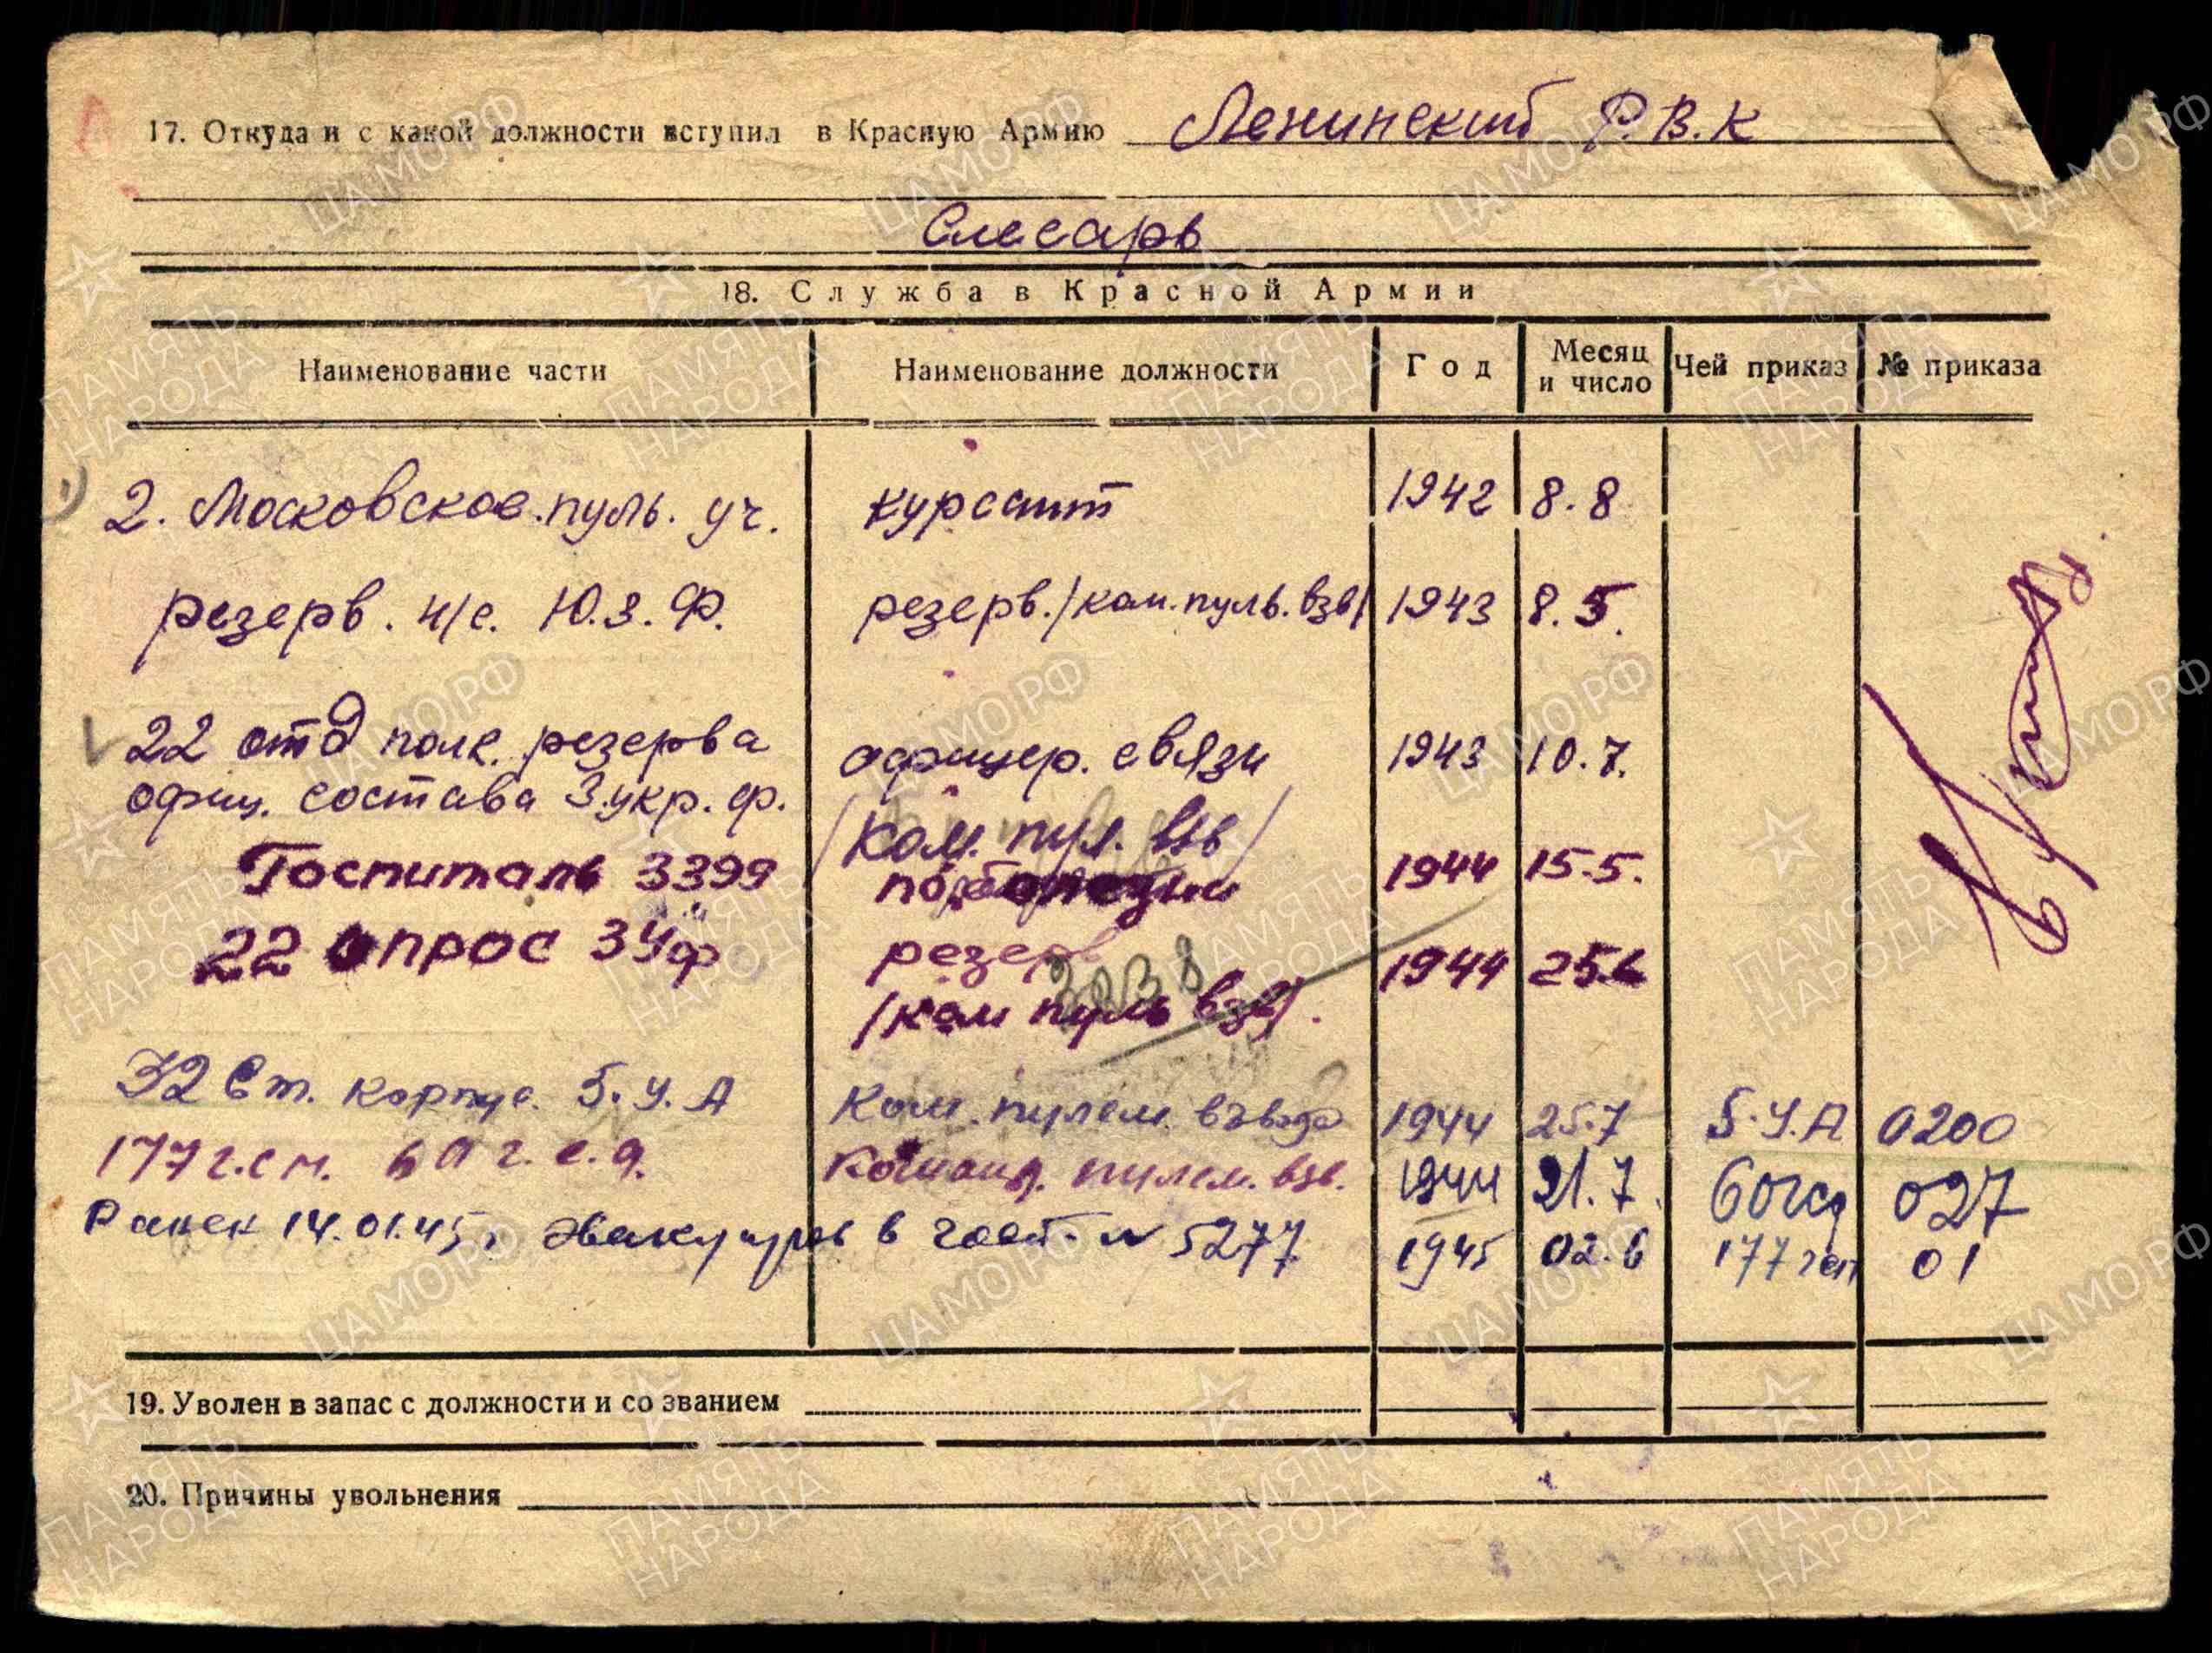 17. Откуда и с какой должности вступил в Красную Армию Ленинский Р.В.К
Слесарь
18. Служба в Красной Армии
Наименование части Наименование должности Год Месяц и число Чей приказ № приказа
2. Московское.пуль. уч. курсант 1942 8.8
резерв. н/с. Ю.З.Ф. резерв./ком.пуль.взв/ 1943 8.5.
22 отд полк. резерва офицер. связи 1943 10.7.
офиц. состава 3.укр.ф. /Ком. пул. взв/
Госпиталь 3399 по болезни 1944 15.5.
22 опрос 3Уф резерв 1944 25.6
/ком пуль взв/.
32 Ст. корпус. 5.У.А Ком. пулем. взвода 1944 25.7 5.У.А 0200
177 г.с.п. 60 г.с.д. Команд. пулем. взв. 1944 21.7. 60гсд 027
Ранен 14.01.45, эвакуиров в госп. № 5277 1945 02.6 177 гсп 01
19. Уволен в запас с должности и со званием
20. Причины увольнения
ПАМЯТЬ НАРОДА
ЦАМО.РФ